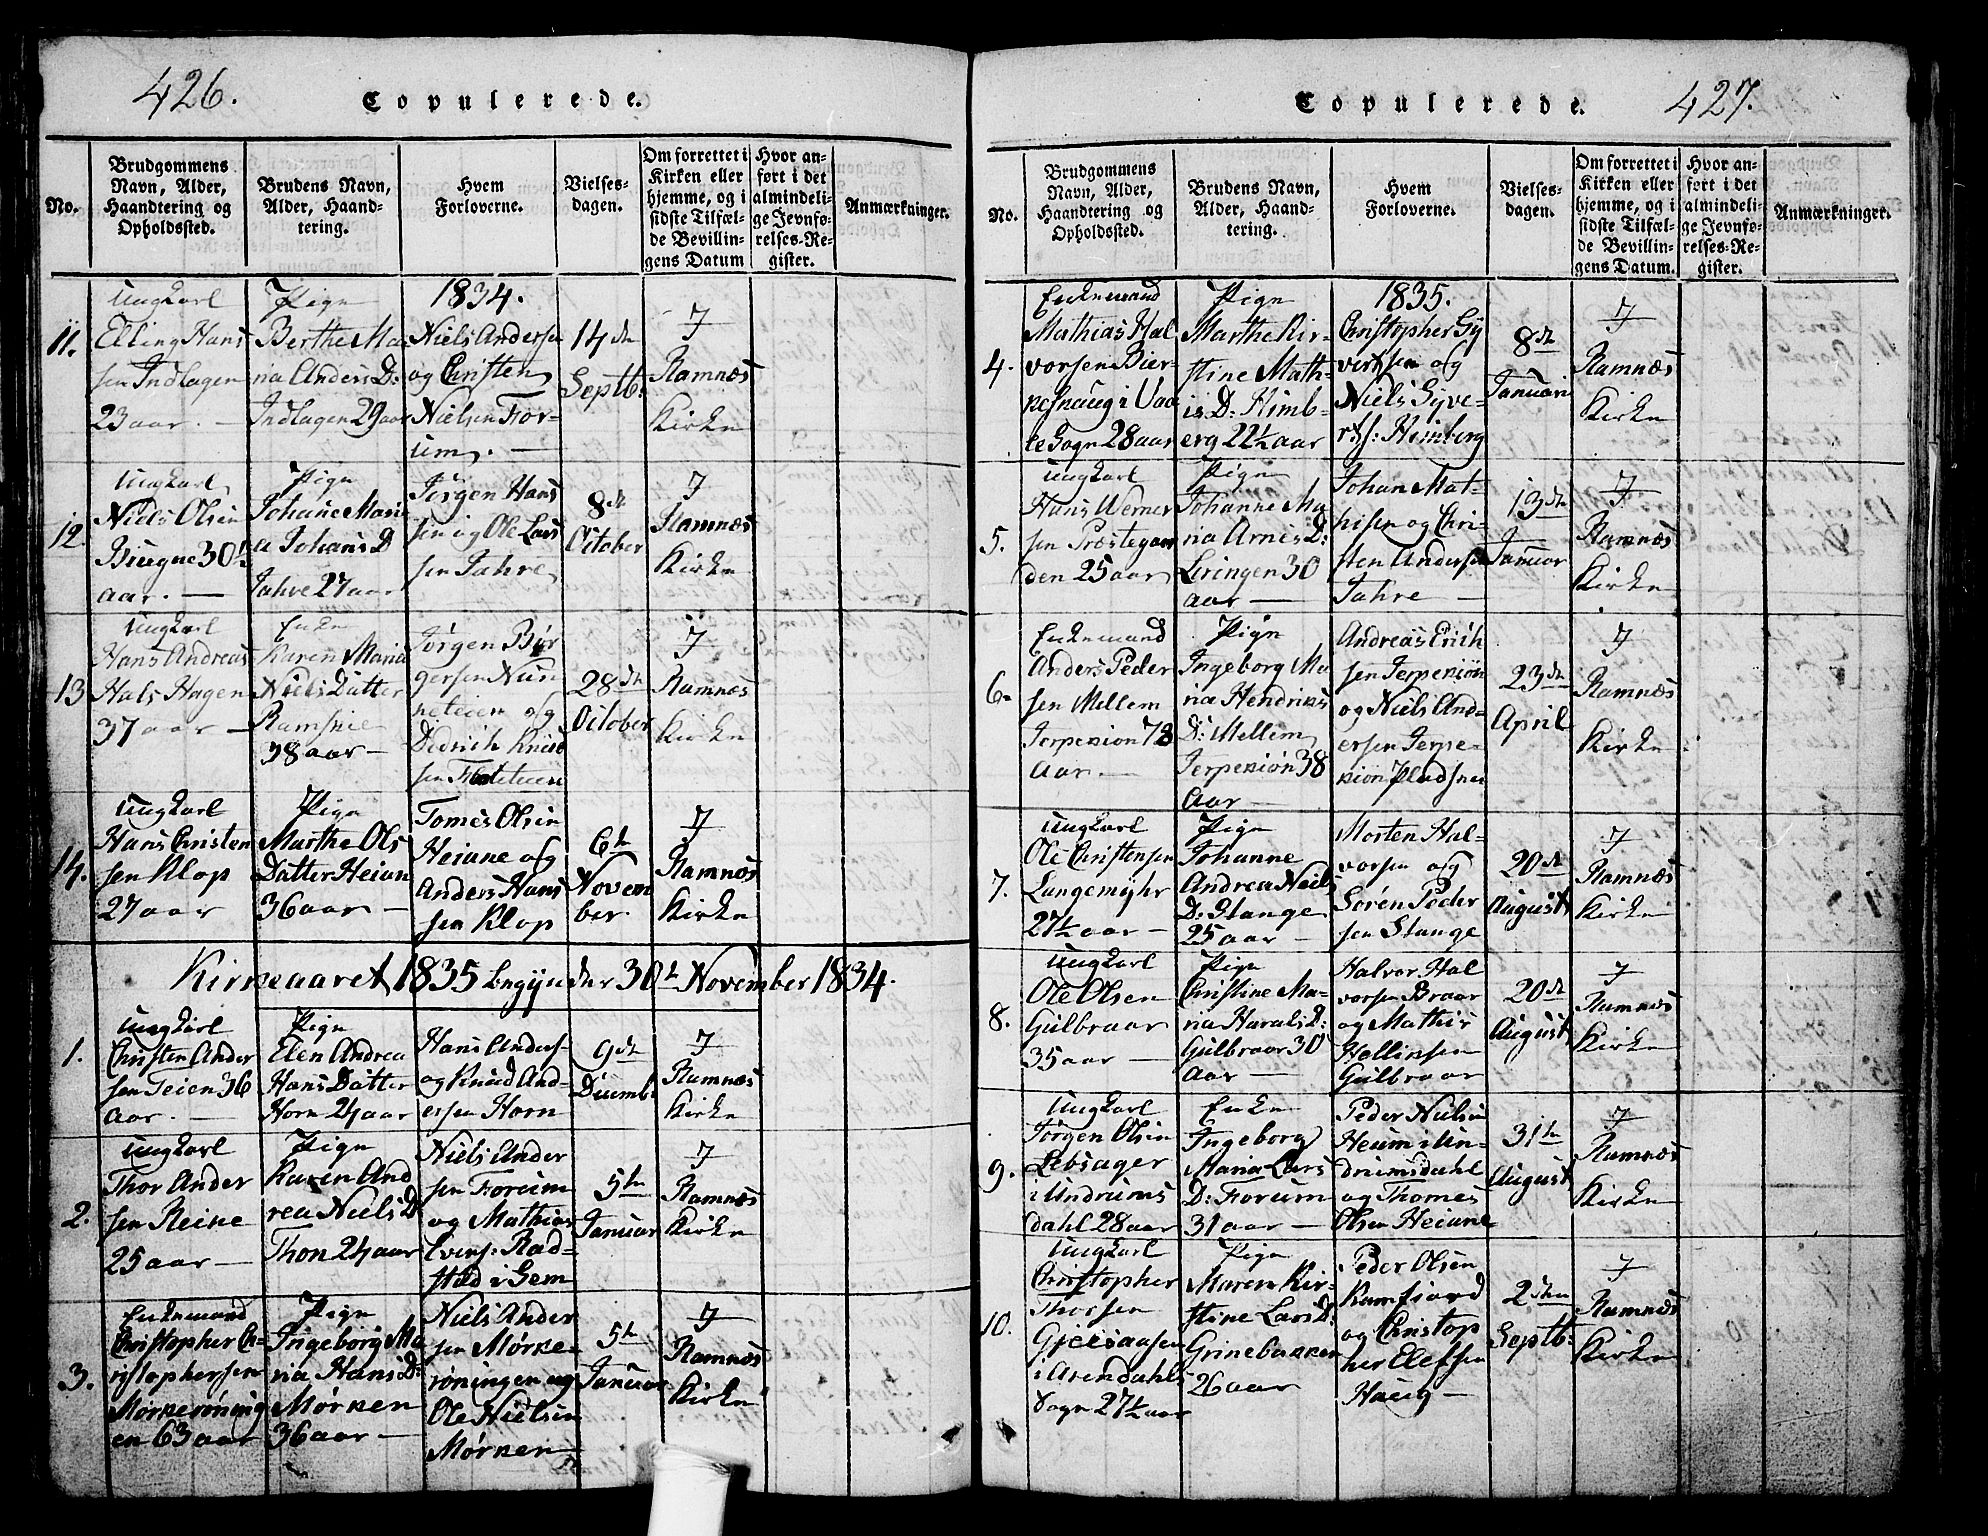 426.
Copulerede.
No.
Brudgommens
Navn, Alder,
Haandtering og
Opholdssted.
Brudens Navn,
Alder, Haand-
tering.
Hvem
Forloverne.
Vielses-
dagen.
Om forrettet i
Kirken eller
hjemme, og i
sidste Tilfæl-
de Bevillin-
gens Datum
Hvor an-
ført i det
almindeli-
ge Jevnfø-
relses-Re-
gister.
Anmærkninger.
11.
Ungkarl
Elling Hans
sen Indlagen
23 aar. –
Pige
Berthe Ma
ria Anders D:
Indlagen 29 aar
1834.
Niels Andersen
og Christen
Nielsen For-
um. –
14de
Septb:
I
Ramnæs
Kirke
12.
Ungkarl
Niels Olsen
Biugne 30te
aar. –
Pige
Johane Mari
a Johans D
Jahre 27 aar
Jørgen Hans
sen og Ole Lars
sen Jahre
8de
October
I
Ramnæs
Kirke
13
Ungkarl
Hans Andreas
Hals Hagen
37 aar –
Enke
Karen Maria
Niels Datter
Ramskie
38 aar –
Jørgen Bør
gersen Nun
neteien og
Didrich Knud
sen
28de
October
I
Ramnæs
Kirke
14.
Ungkarl
Hans Christen
sen Klop
27 aar
Pige
Marthe Ols
Datter Heian
36 aar –
Tomes Olsen
Heiane og
Anders Hans
sen Klop
6te
Novem
ber
I
Ramnæs
Kirke
Kirkeaaret 1835 begynder 30te November 1834.
1.
Ungkarl
Christen Ander
sen Teien 36
aar. –
Pige
Elen Andrea
Hans Datter
Horn 24 aar
Hans Anders
og Knud And-
ersen Horn
9de
Decemb:
I
Ramnæs
Kirke
2.
Ungkarl
Thor Ander
sen Reine
25 aar –
Pige
Karen And
rea Niels D
Thon 24 aar
Niels Ander
sen Forum
og Mathias
Evens: Rad-
stad i Sem
5te
Januar
I
Ramnæs
Kirke
3.
Enkemand
Christopher Ch-
ristophersen
Mørkerøning
en 63 aar
Pige
Ingeborg Ma
ria Hans D:
Mørken
36 aar –
Niels Ander
sen Mørke
røningen og
Ole Nielsen
Mørken
5te
Januar
I
Ramnæs
Kirke
427.
Copulerede.
No.
Brudgommens
Navn, Alder,
Haandtering og
Opholdssted.
Brudens Navn,
Alder, Haand-
tering.
Hvem
Forloverne.
Vielses-
dagen.
Om forrettet i
Kirken eller
hjemme, og i
sidste Tilfæl-
de Bevillin-
gens Datum.
Hvor an-
ført i det
almindeli-
ge Jevnfø-
relses-Re-
gister.
Anmærkninger.
4.
Enkemand
Mathias Hal
vorsen Bier-
kehaug i Vaa
le Sogn 28 aar
Pige
Marthe Kir-
stine Math-
is D: Himb-
erg 22½ aar
1835.
Christopher Sy
vertsen og
Niels Syve-
rts: Himberg
8de
Januari
I
Ramnæs
Kirke
5.
Ungkarl
Hans Werner
sen Præstegaar
den 25 aar
Pige
Johanne Ma
ria Arnes D:
Liringen 30
aar –
Johan Mat-
hisen og Chri-
sten Andersen
Jahre –
13de
Januar
I
Ramnæs
Kirke
6.
Enkemand
Anders Peder
sen Mellem
Jerpekiøn 78
Aar –
Pige
Ingeborg Ma
ria Hendriks
D: Mellem
Jerpekiøn 38
Aar –
Andreas Erich
sen Jerpekiøn
og Niels And-
ersen Jerpe-
kiøn Pladsen
23de
April
I
Ramnæs
Kirke
7.
Ungkarl
Ole Christensen
Langemyhr
27½ aar –
Pige
Johanne
Andrea Neils
D: Stange
25 aar –
Morten Hal-
vorsen og
Søren Peder
sen Stange
20de
August
I
Ramnæs
Kirke
8.
Ungkarl
Ole Olsen
Gulbraar
35 aar –
Pige
Christine Ma-
ria Harals D:
Gulbraar 30
aar –
Halvor Hal
vorsen Braar
og Mathis
Hellinsen
Gulbraar
20de
August
I
Ramnæs
Kirke
9.
Ungkarl
Jørgen Olsen
Lebsager
i Undrums
dahl 28 aar
Enke
Ingeborg
Maria Lars
D: Forum
31 aar –
Peder Nielsen
Heum i Un-
drumsdahl
og Thomes
Olsen Heiane
31te
August
I
Ramnæs
Kirke
10.
Ungkarl
Christopher
Thorsen
i Arendahls
Sogn 27½ aar
Pige
Maren Kir-
stine Lars D:
Grinebakken
26 aar
Peder Olsen
Kamfiord
og Christop
her Elefsen
Haug –
2den
Septb:
I
Ramnæs
Kirke